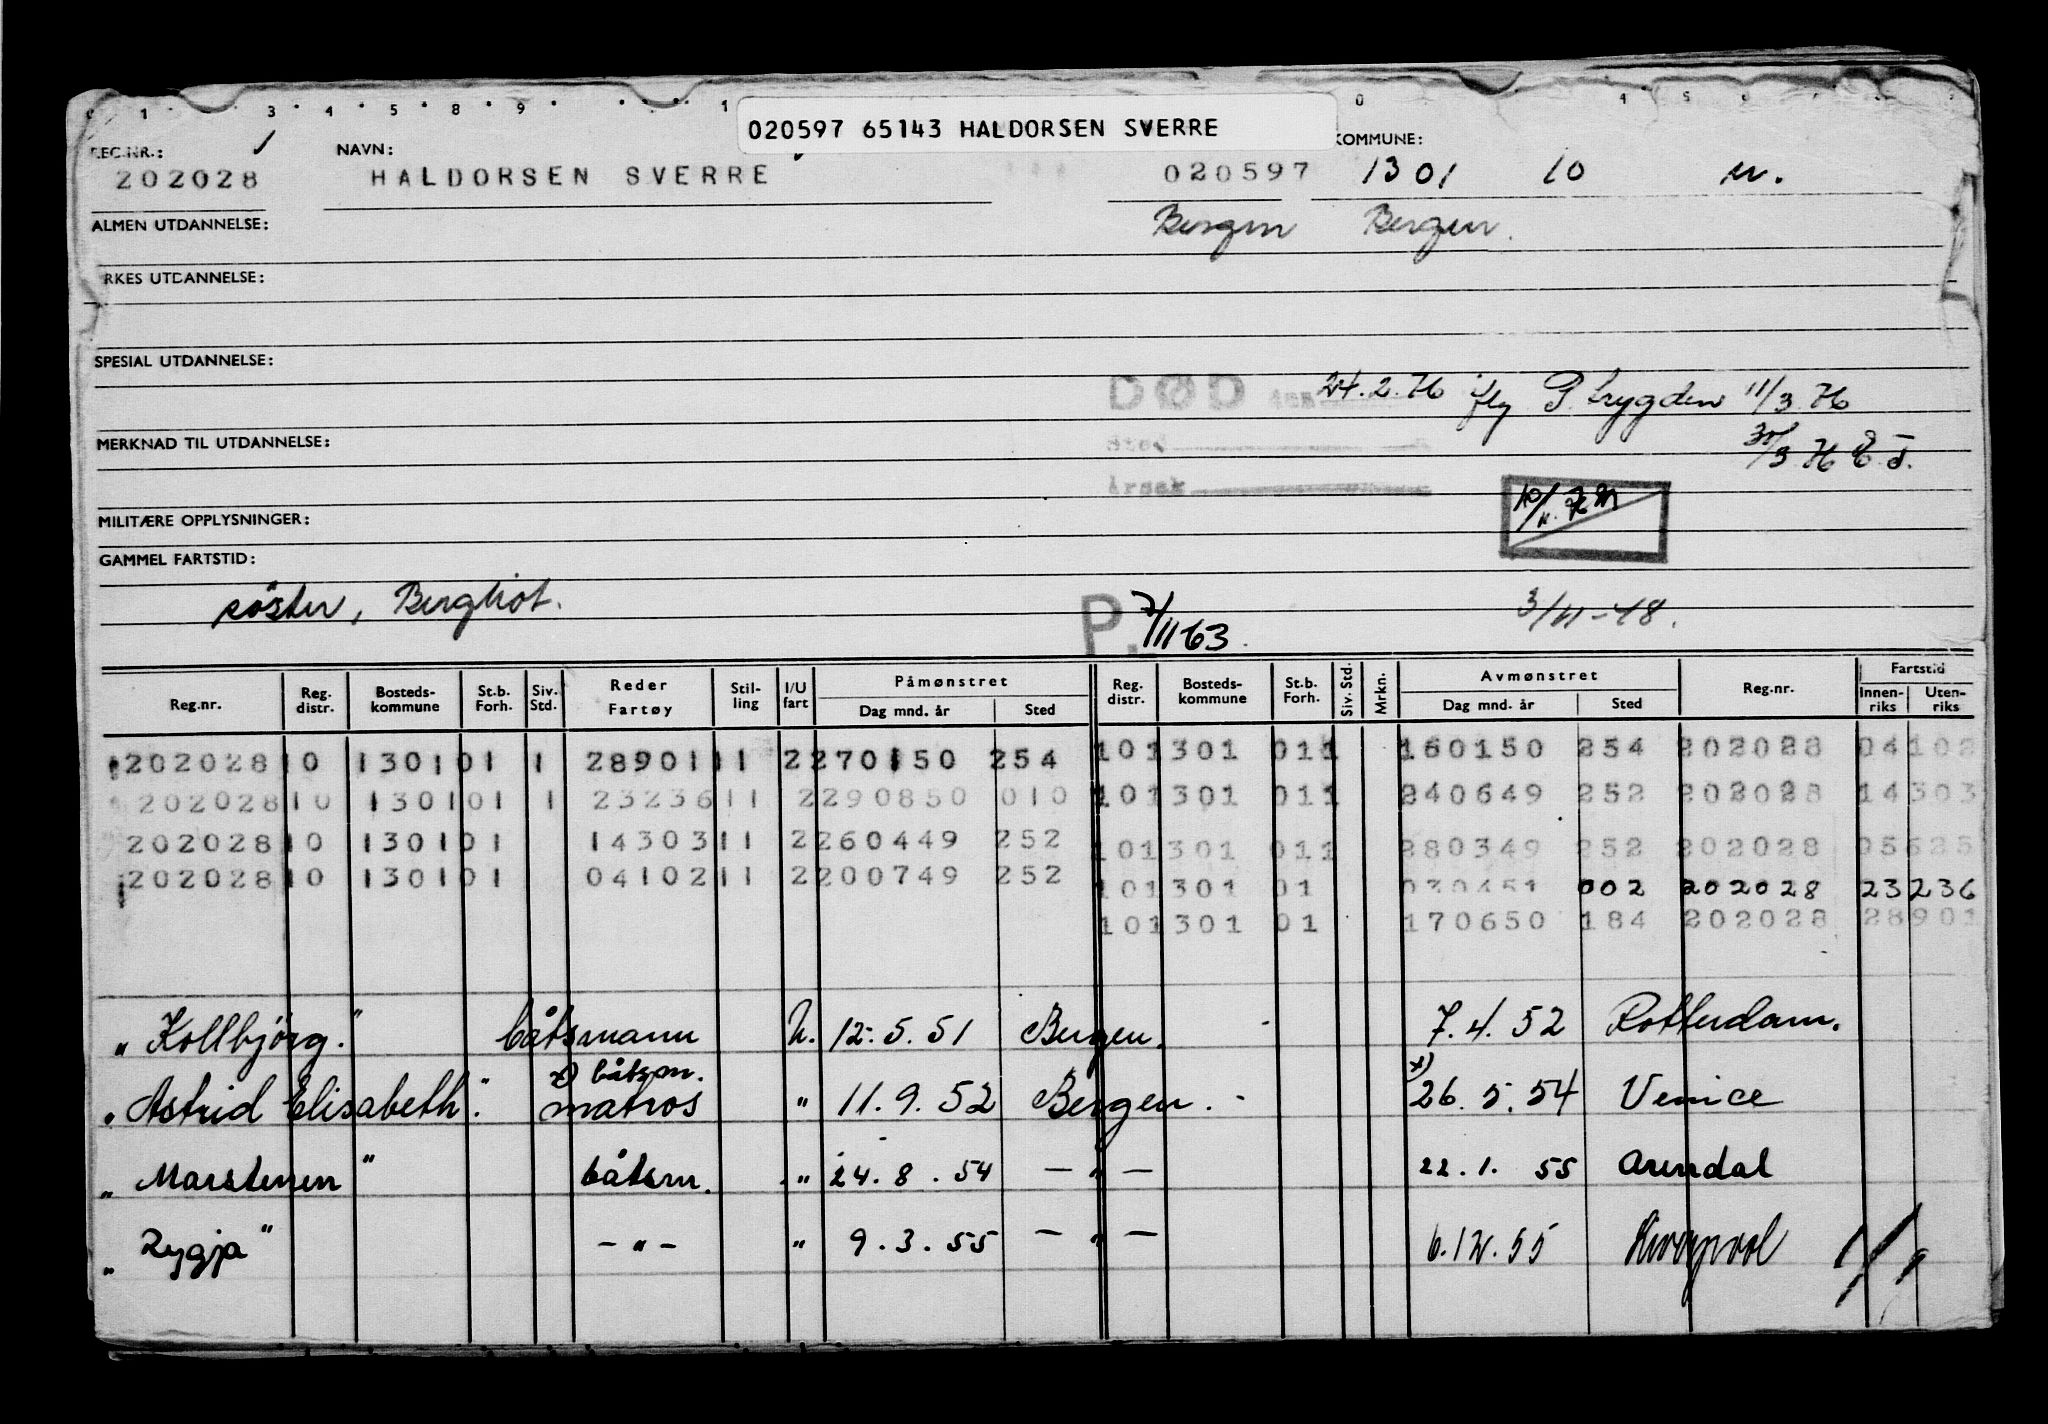 020597 65143 HALDORSEN SVERRE
REG.NR.: NAVN: KOMMUNE:
202028 HALDORSEN SVERRE 020597 1301 10 m.
ALMEN UTDANNELSE: Bergen Bergen.
YRKES UTDANNELSE:
SPESIAL UTDANNELSE:
DØD den 24.2.76 iflg P.trygden 11/3 76
MERKNAD TIL UTDANNELSE: sted 30/3 76 E.J.
årsak
MILITÆRE OPPLYSNINGER:
GAMMEL FARTSTID:
søster, Bergliot. P. 7/11 63. 3/11-48.
Reg.nr. Reg. distr. Bosteds-kommune St.b. Forh. Siv. Std. Reder Fartøy Stil-ling I/U fart Påmønstret Dag mnd. år Sted Reg. distr. Bosteds-kommune St.b. Forh. Siv. Std. Mrkn. Avmønstret Dag mnd. år Sted Reg.nr. Fartstid Innen-riks Uten-riks
202028 10 1301 01 1 28901 11 2 270150 254 10 1301 01 1 160150 254 202028 04102
202028 10 1301 01 1 23236 11 2 290850 010 10 1301 01 1 240649 252 202028 14303
202028 10 1301 01 14303 11 2 260449 252 10 1301 01 1 280349 252 202028 05625
202028 10 1301 01 04102 11 2 200749 252 10 1301 01 030451 002 202028 23236
10 1301 01 170650 184 202028 28901
" Kollbjörg." båtsmann U. 12.5.51 Bergen. - 7.4.52 Rotterdam.
x) båtsm.
" Astrid Elisabeth." matros " 11.9.52 Bergen. - x) 26.5.54 Venice
" Marstenen " båtsm. " 24.8.54 — " — 22.1.55 Arendal
" Rygja " — " — " 9.3.55 — " — 6.12.55 Liverpool